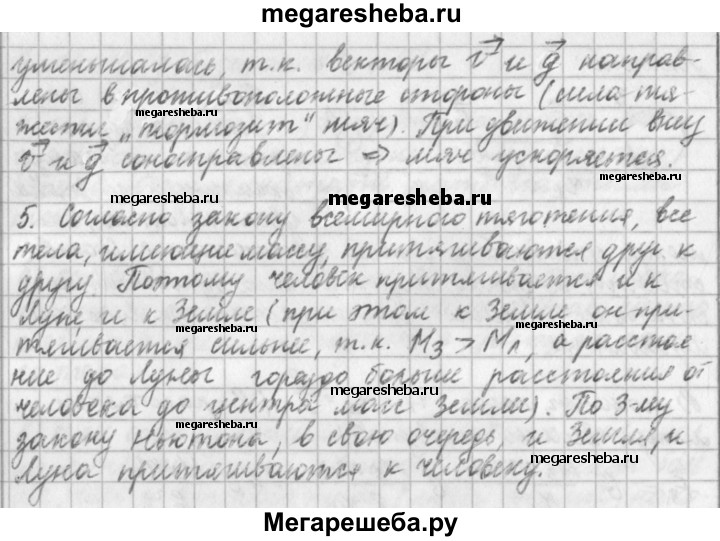 megaresheba.ru
уменьшалась, т.к. векторы v и g направ-
лены в противоположные стороны (сила тя-
жести „тормозит" мяч). При движении вниз
v и g сонаправлены => мяч ускоряется.
megaresheba.ru
megaresheba.ru
5. Согласно закону всемирного тяготения, все
тела, имеющие массу, притягиваются друг к
другу. Поэтому человек притягивается и к
megaresheba.ru
Луне и к Земле (при этом к Земле он при-
megaresheba.ru
megaresheba.ru
тягивается сильнее, т.к. М₃ > Мл, а расстоя
ние до Луны гораздо больше расстояния от
megaresheba.ru
человека до центра масс Земли). По 3-му
megaresheba.ru
закону Ньютона, в свою очередь, и Земля, и
megaresheba.ru
Луна притягиваются к человеку.
Мегарешеба.ру